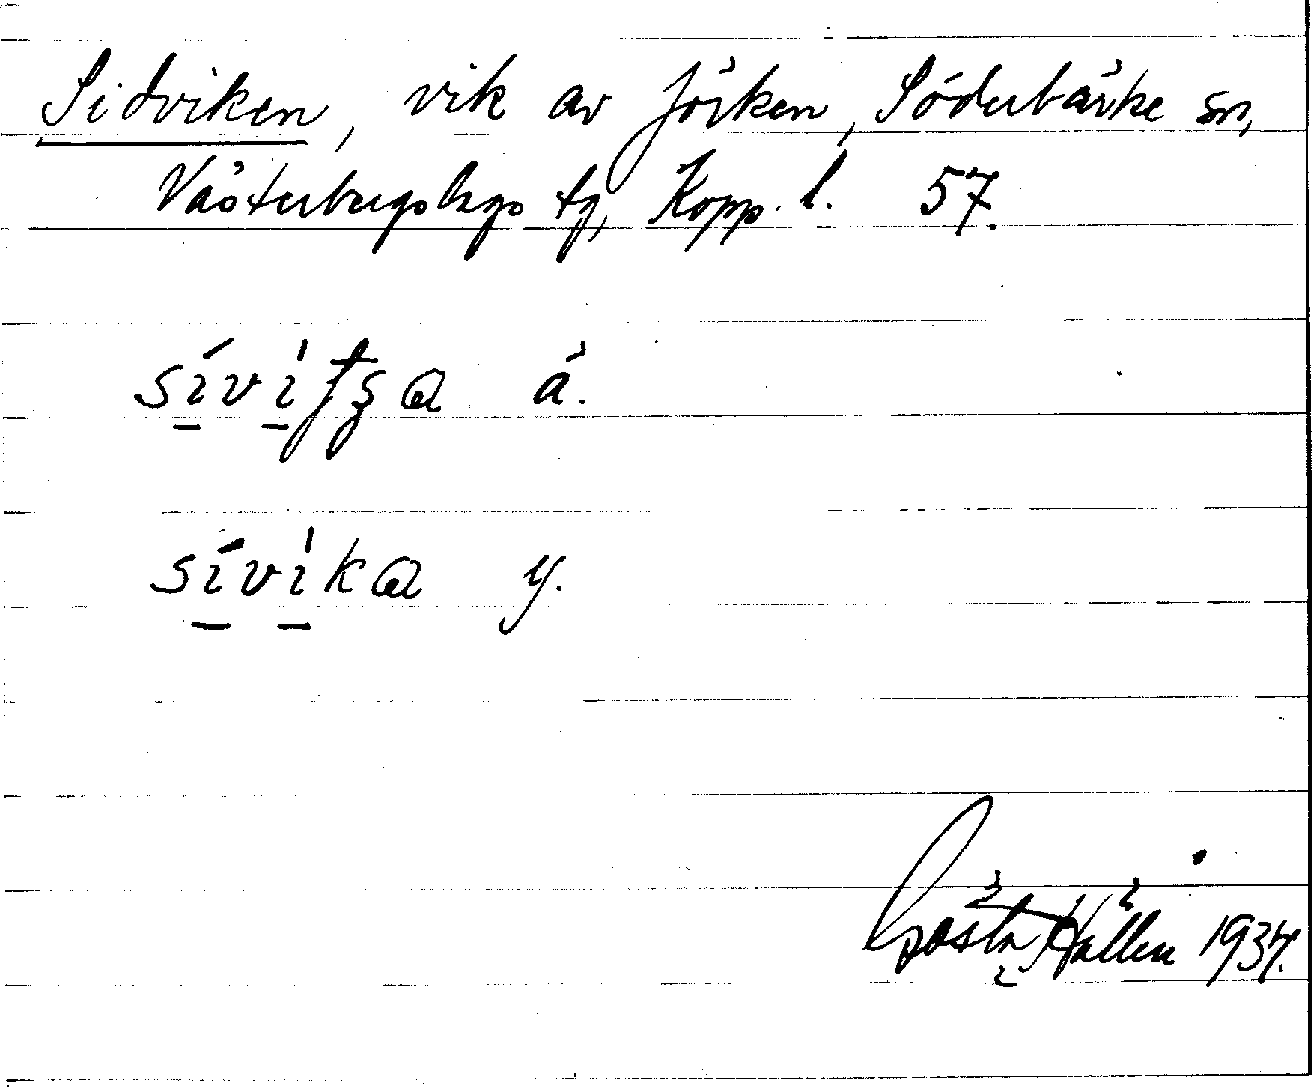 Sidviken, vik av Jörken, Söderbärke sn,
Västerbergslags tg, Kopp. l. 57.
sívi̇ʈʂa ä.
sívi̇ka y.
Gösta Hallén 1934.